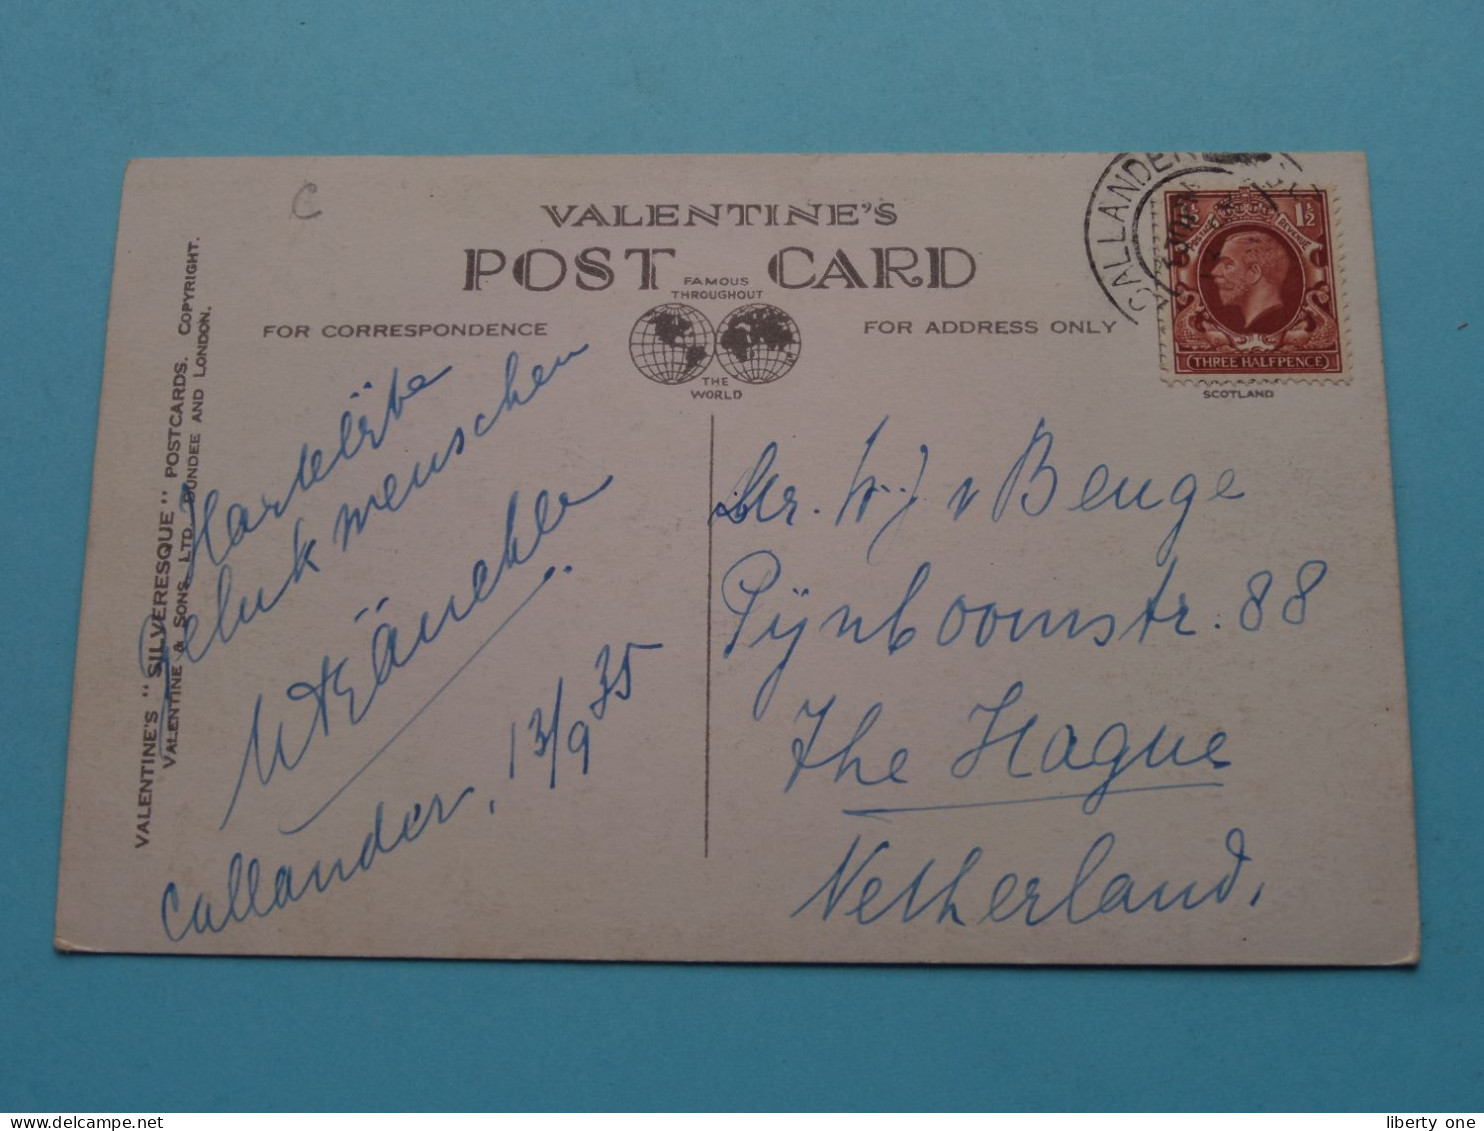 C
VALENTINE'S
POST CARD
FAMOUS
THROUGHOUT
THE
WORLD
FOR CORRESPONDENCE
FOR ADDRESS ONLY
VALENTINE'S "SILVERESQUE" POSTCARDS. COPYRIGHT.
VALENTINE & SONS. LTD. DUNDEE AND LONDON.
CALLANDER
1½
POSTAGE REVENUE
THREE HALFPENCE
SCOTLAND
Hartelijke
gelukmenschen
Callander, 13/9 35
Mr. W. J. v Benge
Pijnboomstr. 88
The Hague
Netherland.
www.delcampe.net
liberty one